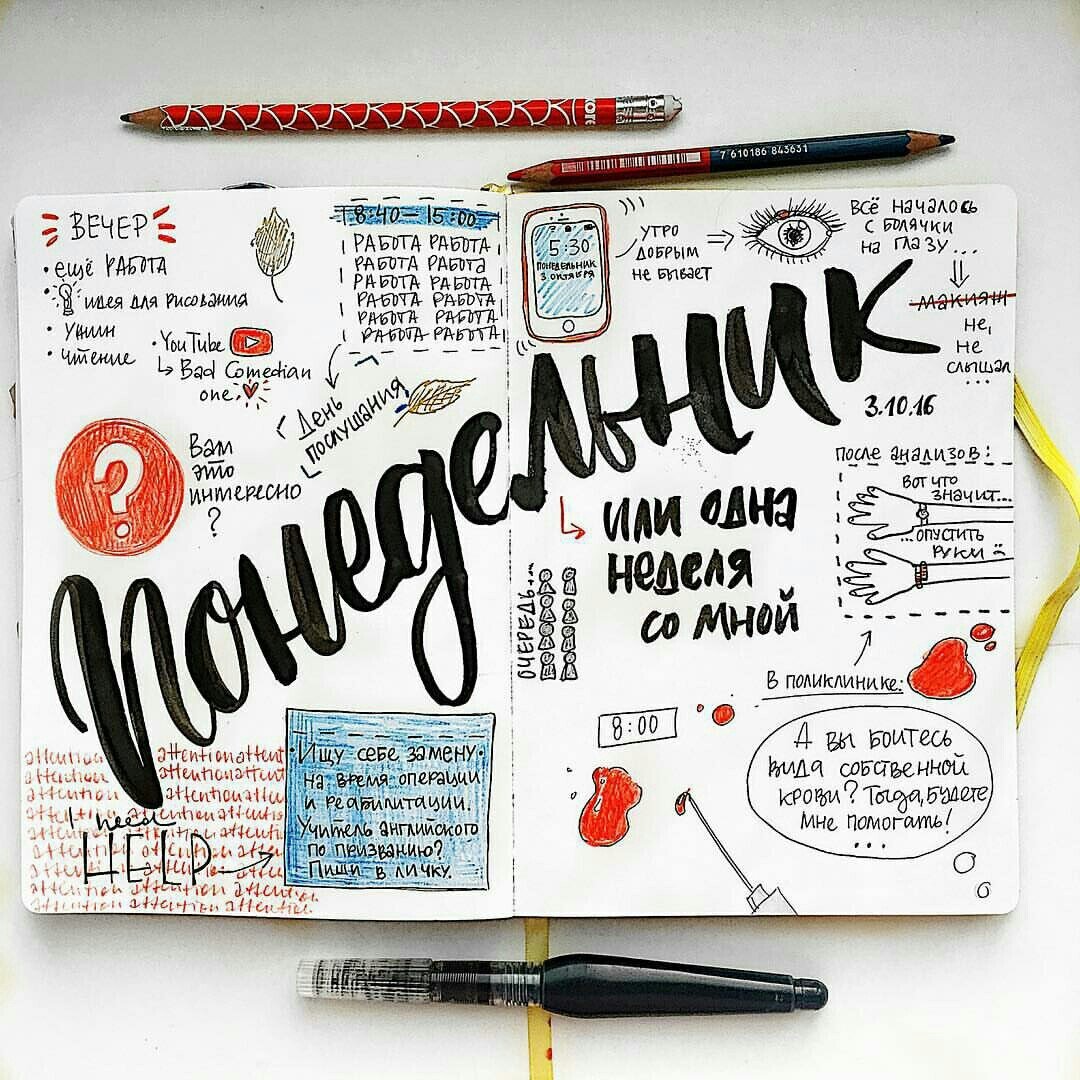 7 610186 843631
ВЕЧЕР
• ещё РАБОТА
• идея для рисования
• Ужин
• чтение
• YouTube
Bad Comedian
one.
18:40 — 15:00
РАБОТА РАБОТА
РАБОТА РАБОТА
РАБОТА РАБОТА
РАБОТА РАБОТА
РАБОТА РАБОТА
РАБОТА РАБОТА
День
послушания
?
Вам
это
интересно
?
Понедельник
attention attention attent
attention attention atten
attention
need
HELP
attention attention attention
• Ищу себе замену •
на время операции
и реабилитации.
Учитель английского
по призванию?
Пиши в личку.
5:30
ПОНЕДЕЛЬНИК
3 ОКТЯБРЯ
УТРО
ДОБРЫМ
НЕ БЫВАЕТ
ВСЁ НАЧАЛОСЬ
С БОЛЯЧКИ
НА ГЛАЗУ...
МАКИЯЖ
НЕ,
НЕ
СЛЫШАЛ
...
3.10.16
или одна
неделя
со мной
ОЧЕРЕДЬ...
ПОСЛЕ АНАЛИЗОВ:
ВОТ ЧТО
ЗНАЧИТ...
...ОПУСТИТЬ
РУКИ
В ПОЛИКЛИНИКЕ:
8:00
А вы боитесь
вида собственной
крови? Тогда, будете
мне помогать!
...